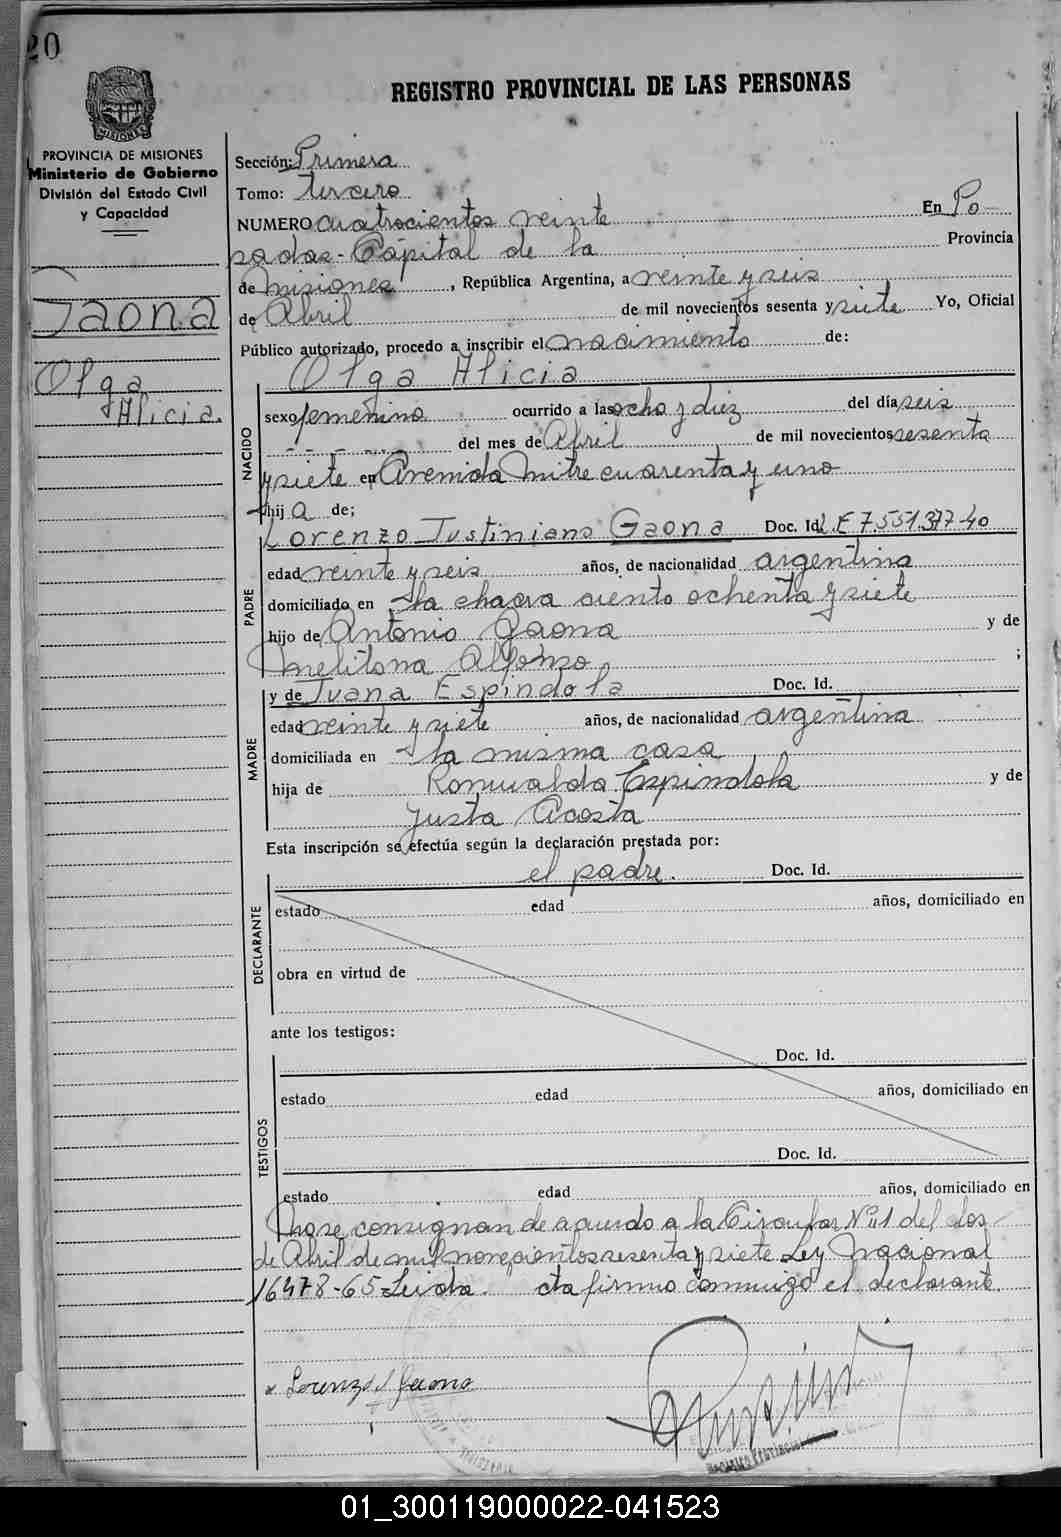 20
REGISTRO PROVINCIAL DE LAS PERSONAS
MISIONES
PROVINCIA DE MISIONES
Ministerio de Gobierno
División del Estado Civil
y Capacidad
Gaona
Olga
Alicia.
Sección: Primera
Tomo: tercero
NUMERO cuatrocientos veinte En Po-
sadas - Capital de la Provincia
de Misiones, República Argentina, a veinte y seis
de Abril de mil novecientos sesenta y siete Yo, Oficial
Público autorizado, procedo a inscribir el nacimiento de:
Olga Alicia
NACIDO
sexo femenino ocurrido a las ocho y diez del día seis
- - - - - del mes de Abril de mil novecientos sesenta
y siete en Avenida Mitre cuarenta y uno
hija de;
PADRE
Lorenzo Justiniano Gaona Doc. Id. L.E 7.551.
edad veinte y seis años, de nacionalidad argentina
domiciliado en la chacra ciento ochenta y siete
hijo de Antonio Gaona y de
Melitona Alfonzo ;
MADRE
y de Juana Espindola Doc. Id.
edad veinte y siete años, de nacionalidad argentina
domiciliada en la misma casa
hija de Romualdo Espindola y de
Justa Acosta
Esta inscripción se efectúa según la declaración prestada por:
DECLARANTE
el padre. Doc. Id.
estado edad años, domiciliado en
obra en virtud de
ante los testigos:
TESTIGOS
Doc. Id.
estado edad años, domiciliado en
Doc. Id.
estado edad años, domiciliado en
consignan de acuerdo a la Circular Nº 11 del dos
de Abril de mil novecientos sesenta y siete Ley Nacional
16478-65 Leida cta firmo conmigo el declarante.
Lorenzo J Gaona
01_300119000022-041523